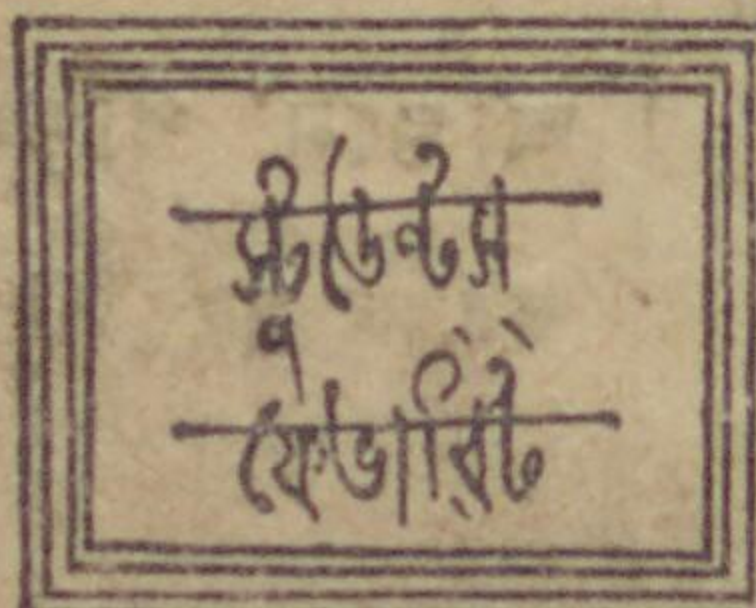 স্টুডেন্টস্
ফেভারিট